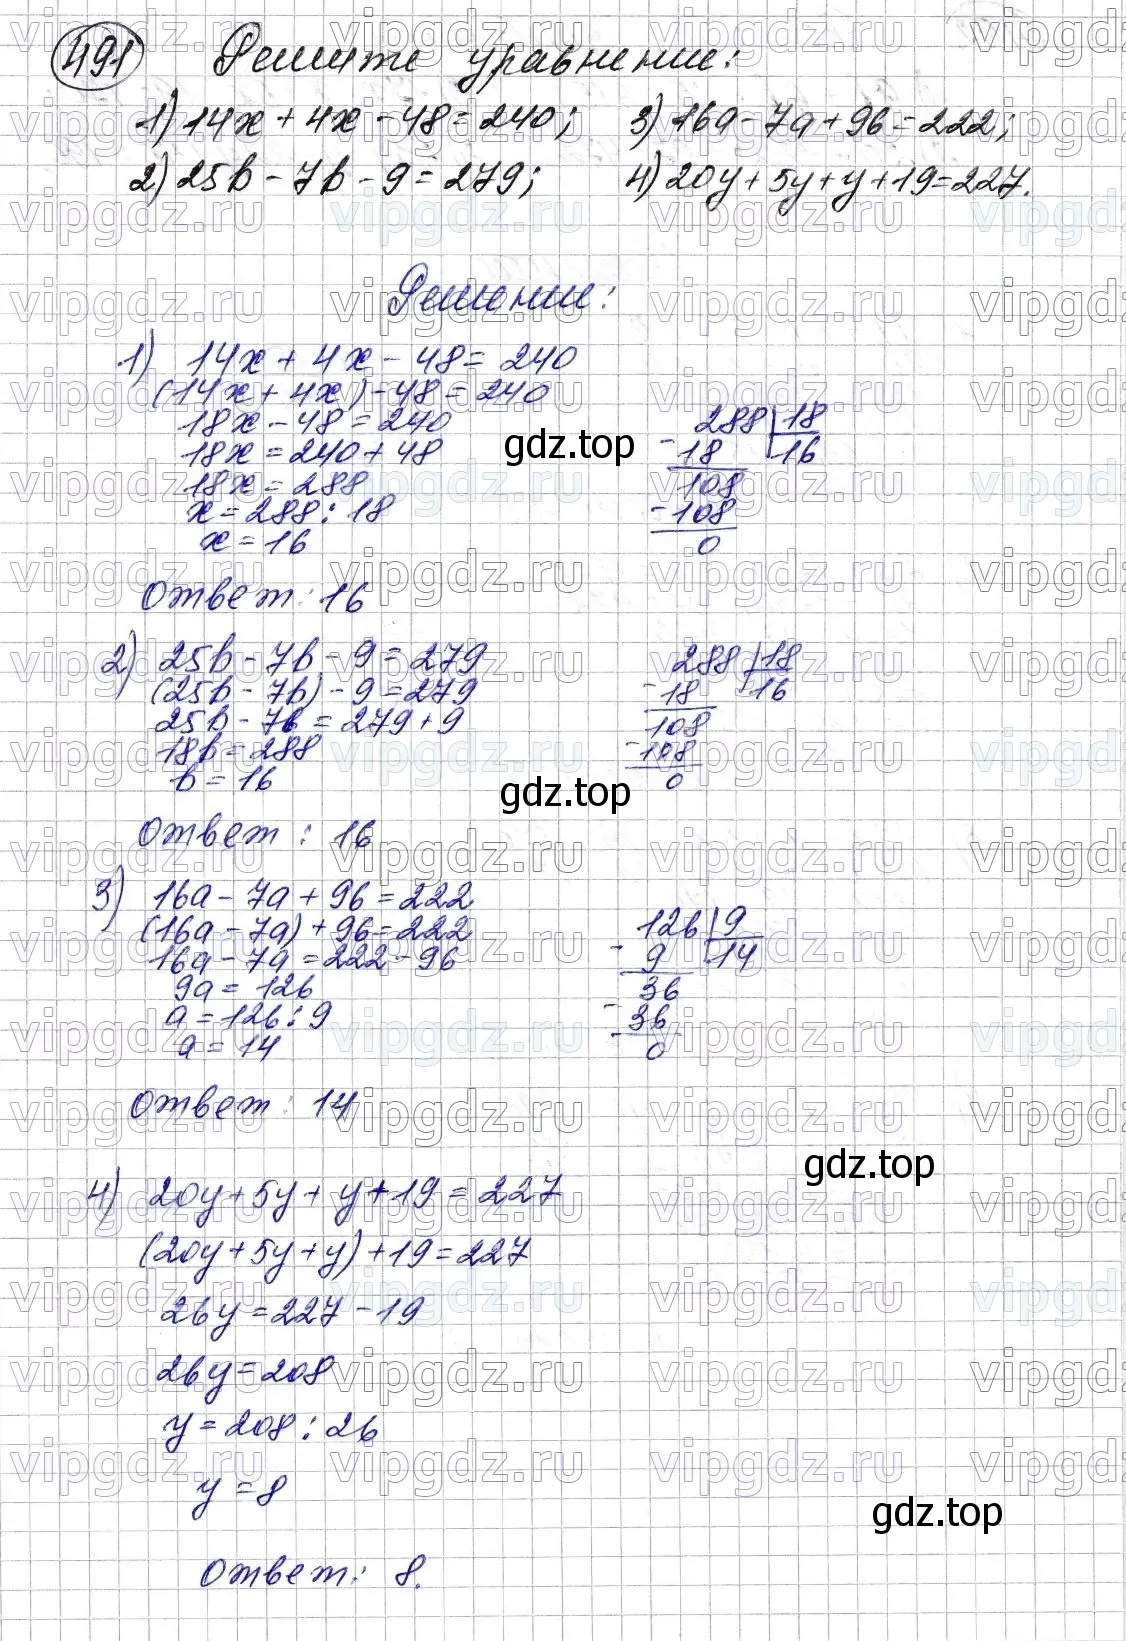 491 Решите уравнение:
1) 14x + 4x - 48 = 240; 3) 16a - 7a + 96 = 222;
2) 25b - 7b - 9 = 279; 4) 20y + 5y + y + 19 = 227.
Решение:
1) 14x + 4x - 48 = 240
(14x + 4x) - 48 = 240
18x - 48 = 240
18x = 240 + 48
18x = 288
x = 288 : 18
x = 16
288 | 18
- 18 16
108
- 108
0
gdz.top
Ответ: 16
2) 25b - 7b - 9 = 279
(25b - 7b) - 9 = 279
25b - 7b = 279 + 9
18b = 288
b = 16
288 | 18
- 18 16
108
- 108
0
gdz.top
Ответ: 16
3) 16a - 7a + 96 = 222
(16a - 7a) + 96 = 222
16a - 7a = 222 - 96
9a = 126
a = 126 : 9
a = 14
126 | 9
- 9 14
36
- 36
0
Ответ: 14
gdz.top
4) 20y + 5y + y + 19 = 227
(20y + 5y + y) + 19 = 227
26y = 227 - 19
26y = 208
y = 208 : 26
y = 8
gdz.top
Ответ: 8.
vipgdz.ru